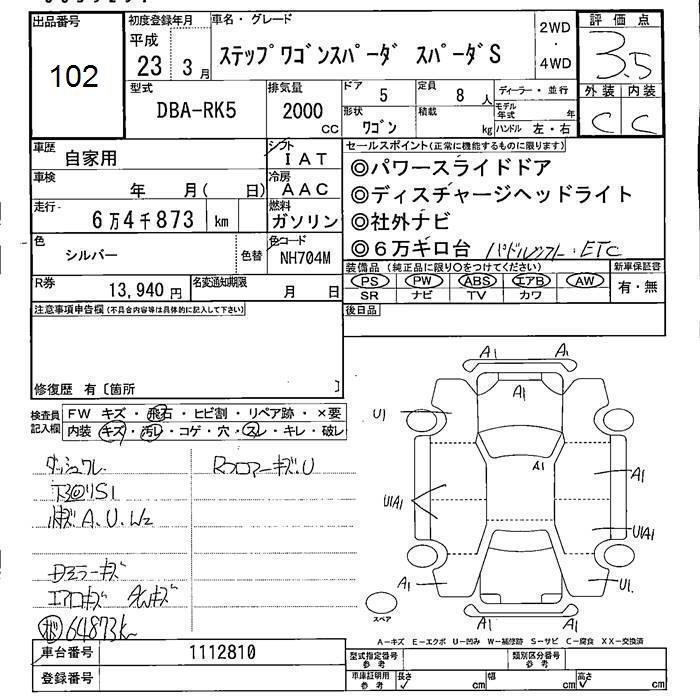 出品番号
102
初度登録年月
平成
23 3 月
車名・グレード
ステップ ワゴンスパーダ スパーダS
2WD
・
4WD
評価点
3.5
外装 内装
C C
型式
DBA-RK5
排気量
2000
CC
ドア
5
定員
8 人
形状
ワゴン
積載
kg
ディーラー・並行
モデル年式 年
ハンドル 左・右
車歴
自家用
シフト
IAT
車検
年 月( 日)
冷房
AAC
走行-
6万4千873 km
燃料
ガソリン
色
シルバー
色替
色コード
NH704M
R券
13,940 円
名変通知期限
月 日
セールスポイント(正常に機能するものに限ります)
◎パワースライドドア
◎ディスチャージヘッドライト
◎社外ナビ
◎6万キロ台 パドルシフト・ETC
装備品(純正品に限り○をつけてください)
PS PW ABS エアB AW
SR ナビ TV カワ
新車保証書
有・無
注意事項申告欄(不具合内容等は具体的に記入して下さい)
後日品
修復歴 有〔箇所 〕
検査員
記入欄
FW キズ・飛石・ヒビ割・リペア跡・×要
内装 キズ・汚レ・コゲ・穴・スレ・キレ・破レ
ダッシュワレ
RフロアーキズU
下回りS1
A.U.W2
Dミラーキズ
エアロキズ AWキズ
64873k
A1 A1
A1
U1
A1
A1
U1A1
U1A1
A1
U1.
A1 A1
スペア
A-キズ E-エクボ U-凹み W-補修跡 S-サビ C-腐食 XX-交換済
車台番号
1112810
登録番号
型式指定番号
参考
類別区分番号
参考
車庫証明用
参考
長さ cm
幅 cm
高さ cm